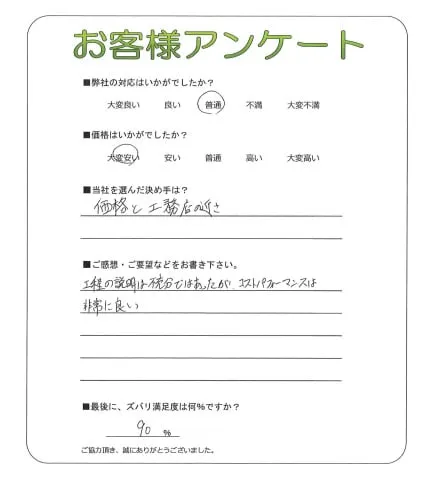 お客様アンケート
■弊社の対応はいかがでしたか?
大変良い 良い 普通 不満 大変不満
■価格はいかがでしたか?
大変安い 安い 普通 高い 大変高い
■当社を選んだ決め手は?
価格と工務店の近さ
■ご感想・ご要望などをお書き下さい。
工程の説明は不充分ではあったが、コストパフォーマンスは
非常に良い
■最後に、ズバリ満足度は何%ですか?
90 %
ご協力頂き、誠にありがとうございました。